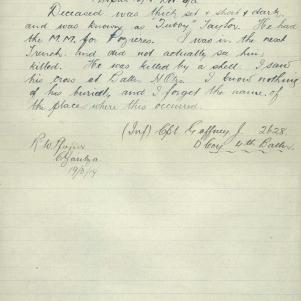 Deceased was thick set & short & dark,
and was known as Tubby Taylor. He had
the M.M. for Pozieres. I was in the next
Trench and did not actually see him
killed. He was killed by a shell. I saw
his cross at Battn. H.Qrs. I know nothing
of his burial, and I forget the name of
the place where this occurred.
(Inf) Cpl Gaffney J. 2628
D Coy 4th Battn.
R.W.
19/3/19